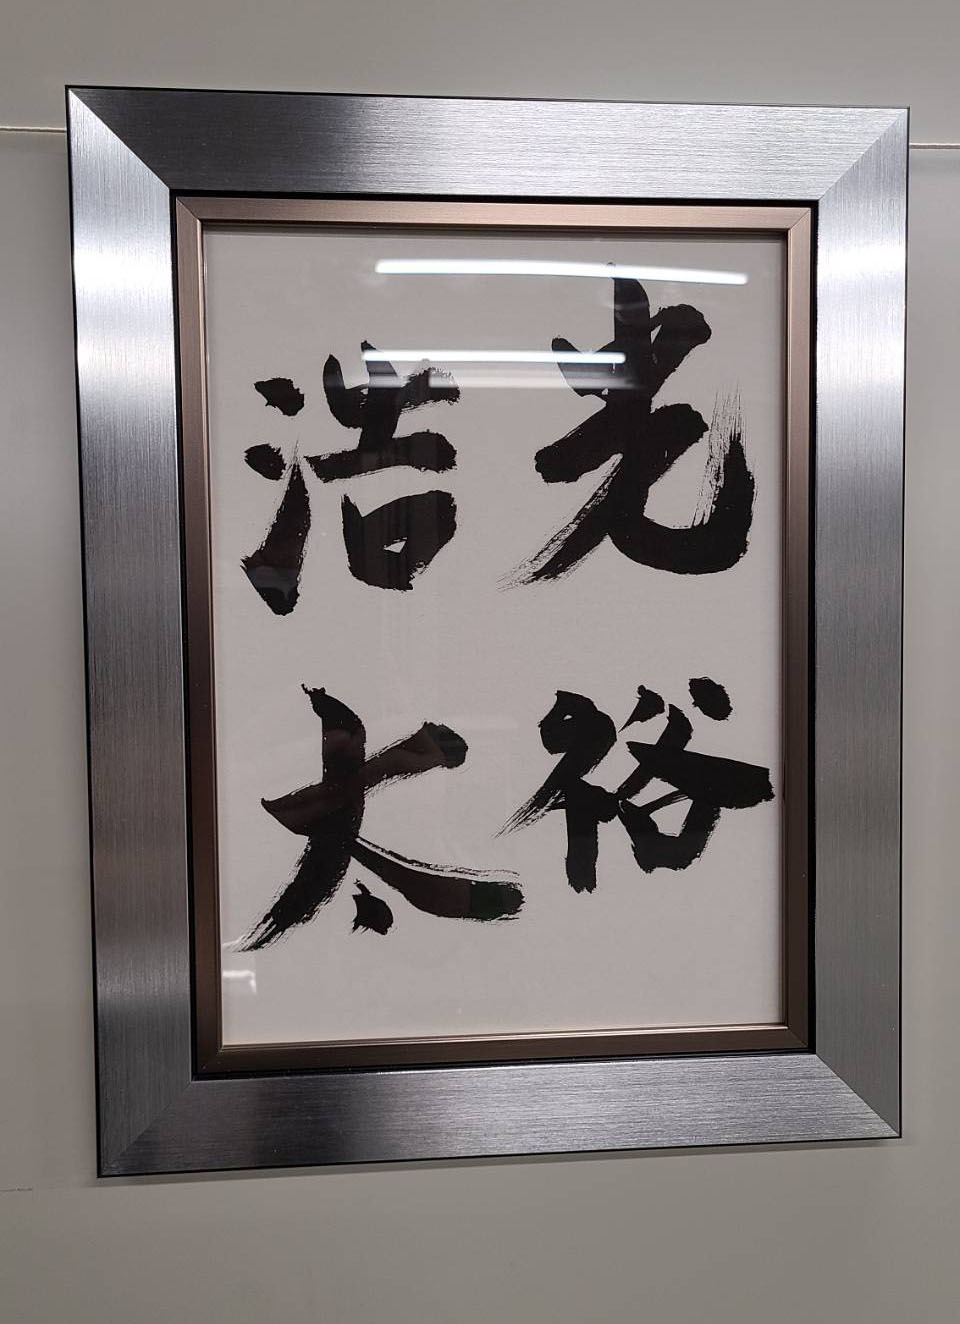 光裕
浩太